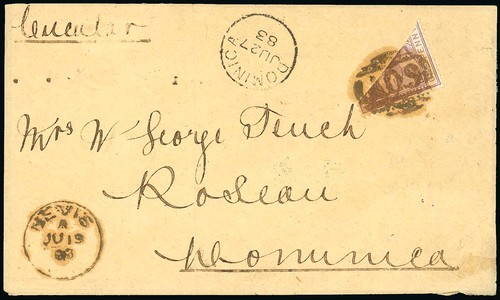 Circular
DOMINICA
JU 27
83
ENN
A09
Mrs W George Tench
Roseau
Dominica
NEVIS
A
JU 19
83